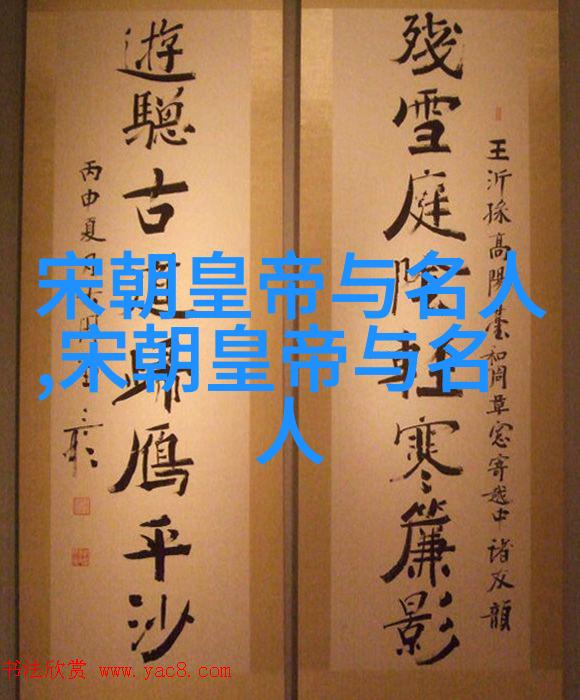 宋朝皇帝与名人
,宋朝皇帝与名
人
殘雪庭陰輕寒簾影
王沂孫高陽臺和周草窗寄越中諸友韻
遊驄古道歸鴈平沙
丙申夏月
书法欣赏 www.yac8.com